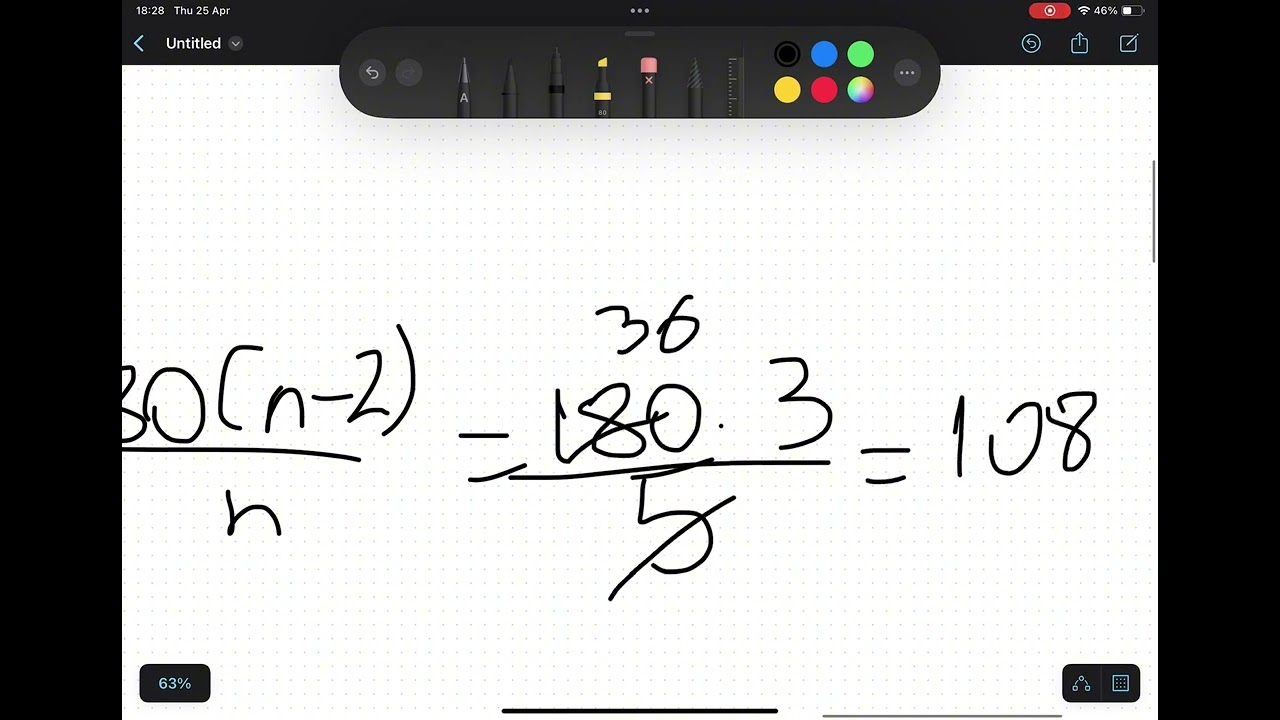 18:28 Thu 25 Apr
46%
Untitled
A
80
36
80(n-2) = 180 · 3 = 108
n 5
63%